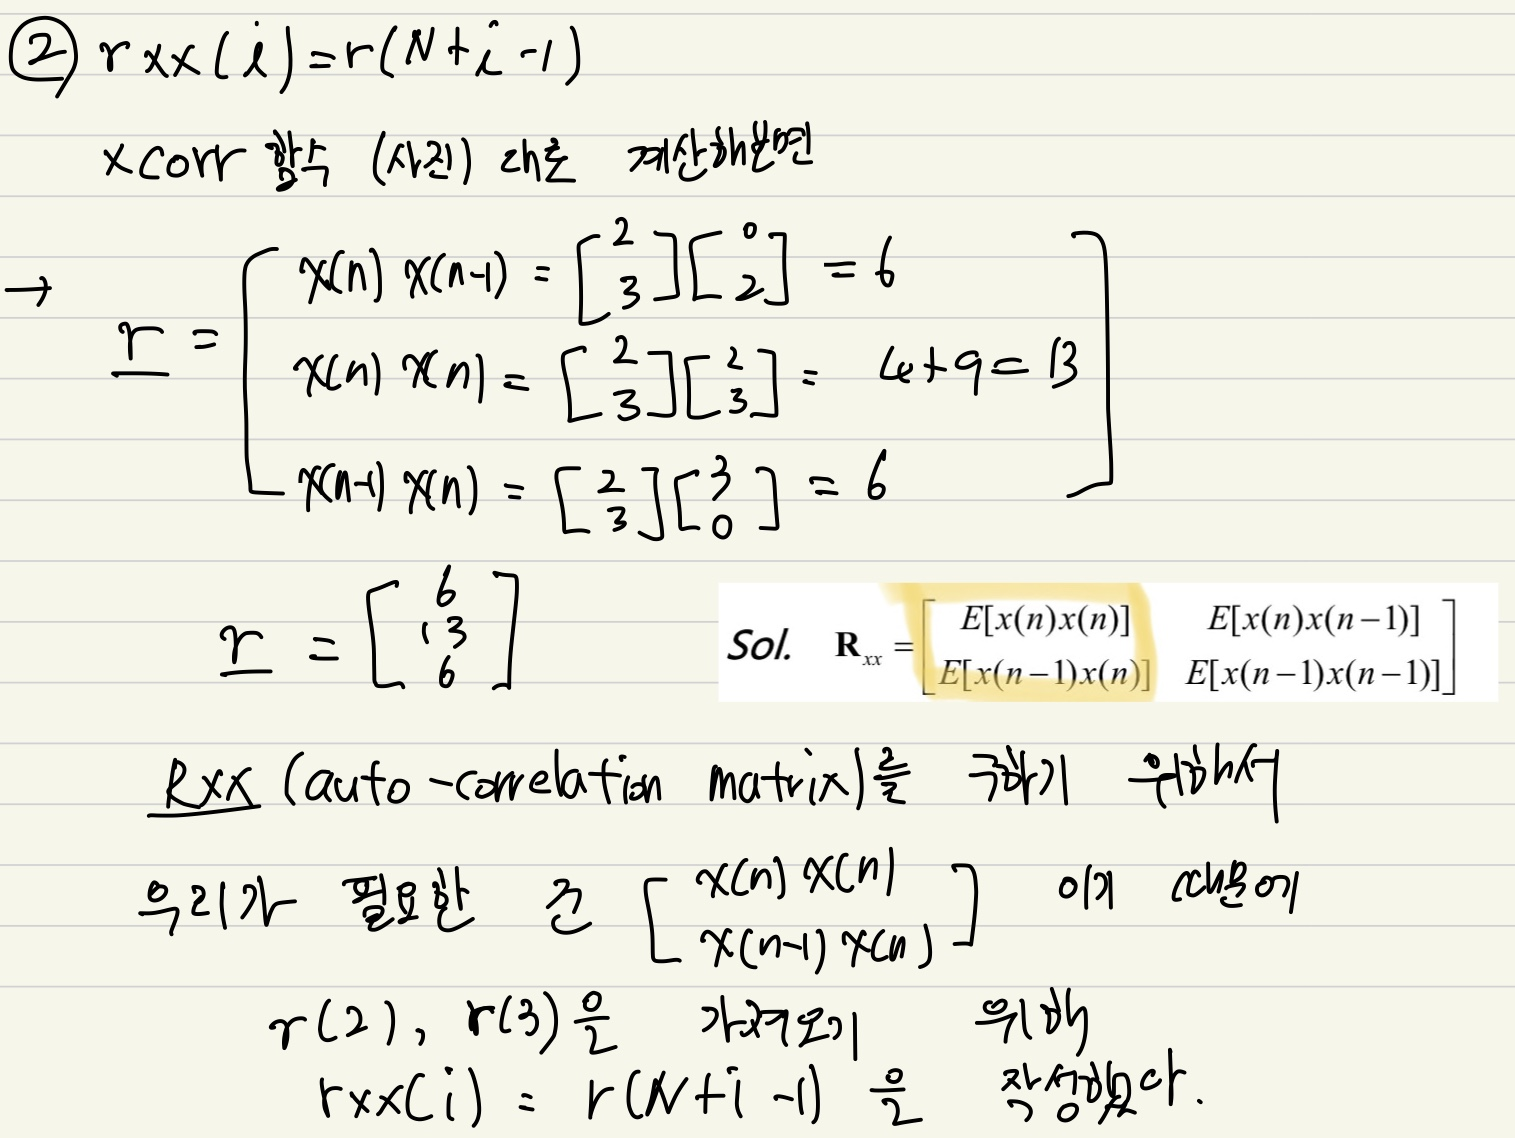 ② rxx(i)=r(N+i-1)
xcorr 함수 (사진) 대로 계산해보면
→ r = [ x(n) x(n-1) = [2 3][0 2] = 6
x(n) x(n) = [2 3][2 3] = 4+9=13
x(n-1) x(n) = [2 3][3 0] = 6 ]
r = [6 13 6]
Sol. R_xx = [ E[x(n)x(n)] E[x(n)x(n-1)]
E[x(n-1)x(n)] E[x(n-1)x(n-1)] ]
Rxx (auto-correlation matrix)를 구하기 위해서
우리가 필요한 건 [ x(n) x(n)
x(n-1) x(n) ] 이기 때문에
r(2), r(3)을 가져오기 위해
rxx(i) = r(N+i-1) 을 작성했다.